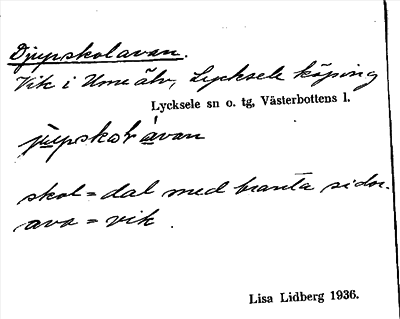 Djupskolavan.
Vik i Ume älv, Lycksele köping
Lycksele sn o. tg, Västerbottens l.
jupskol avan
skol = dal med branta sidor.
ava = vik.
Lisa Lidberg 1936.